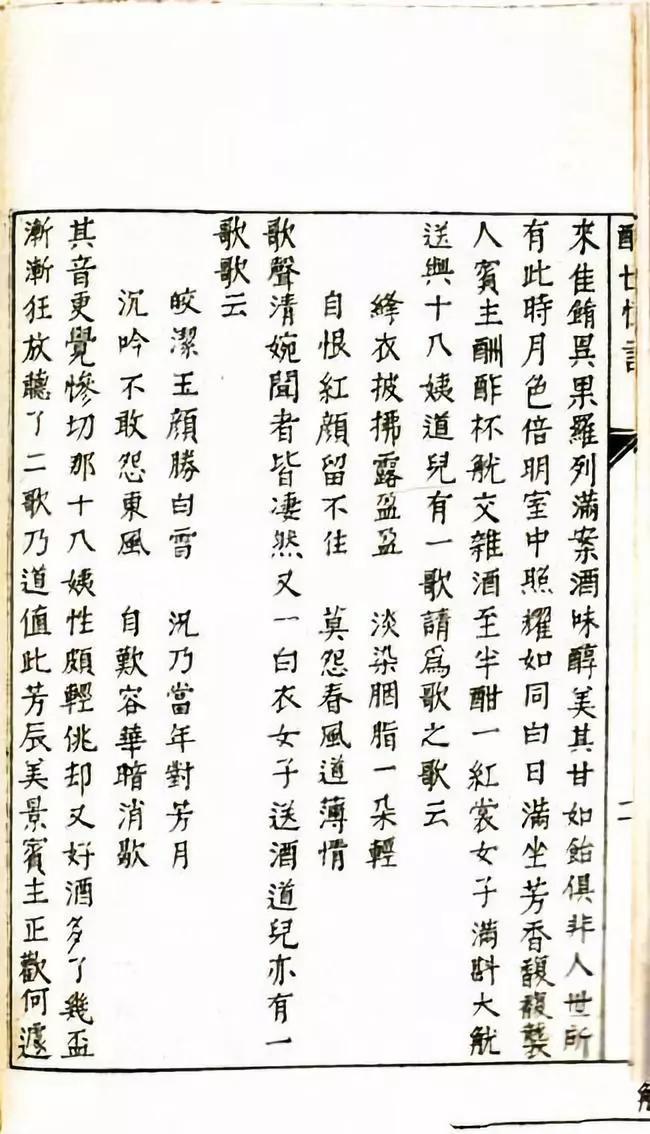 來佳餚異果羅列滿案酒味醇美其甘如飴俱非人世所
有此時月色倍明室中照耀如同白日滿坐芳香馥馥襲
人賓主酬酢杯觥交雜酒至半酣一紅裳女子滿斟大觥
送與十八姨道兒有一歌請爲歌之歌云
絳衣披拂露盈盈 淡染胭脂一朵輕
自恨紅顔留不住 莫怨春風道薄情
歌聲清婉聞者皆凄然又一白衣女子送酒道兒亦有一
歌歌云
皎潔玉顔勝白雪 况乃當年對芳月
沉吟不敢怨東風 自歎容華暗消歇
其音更覺慘切那十八姨性頗輕佻却又好酒多了幾盃
漸漸狂放聽了二歌乃道值此芳辰美景賓主正歡何遽
二